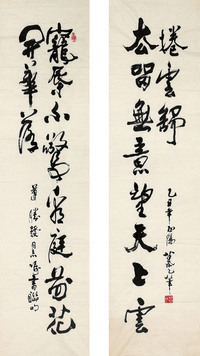 寵辱不驚看庭前花
開華落
去留無意望天上雲
捲雲舒
乙丑年